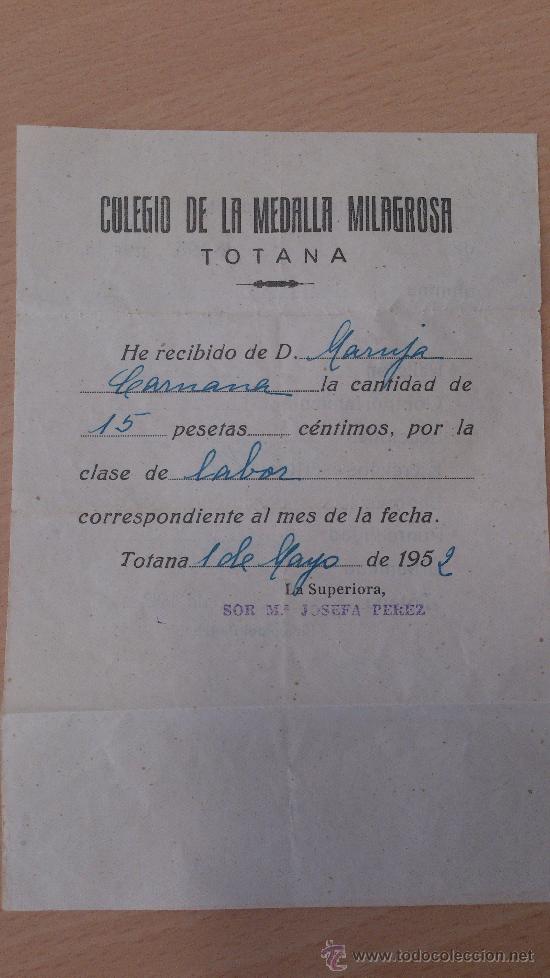 COLEGIO DE LA MEDALLA MILAGROSA
TOTANA
He recibido de D. Maruja
Carnana la cantidad de
15 pesetas céntimos, por la
clase de labor
correspondiente al mes de la fecha.
Totana 1 de Mayo de 1952
La Superiora,
SOR M.ª JOSEFA PEREZ
todocoleccion
www.todocoleccion.net